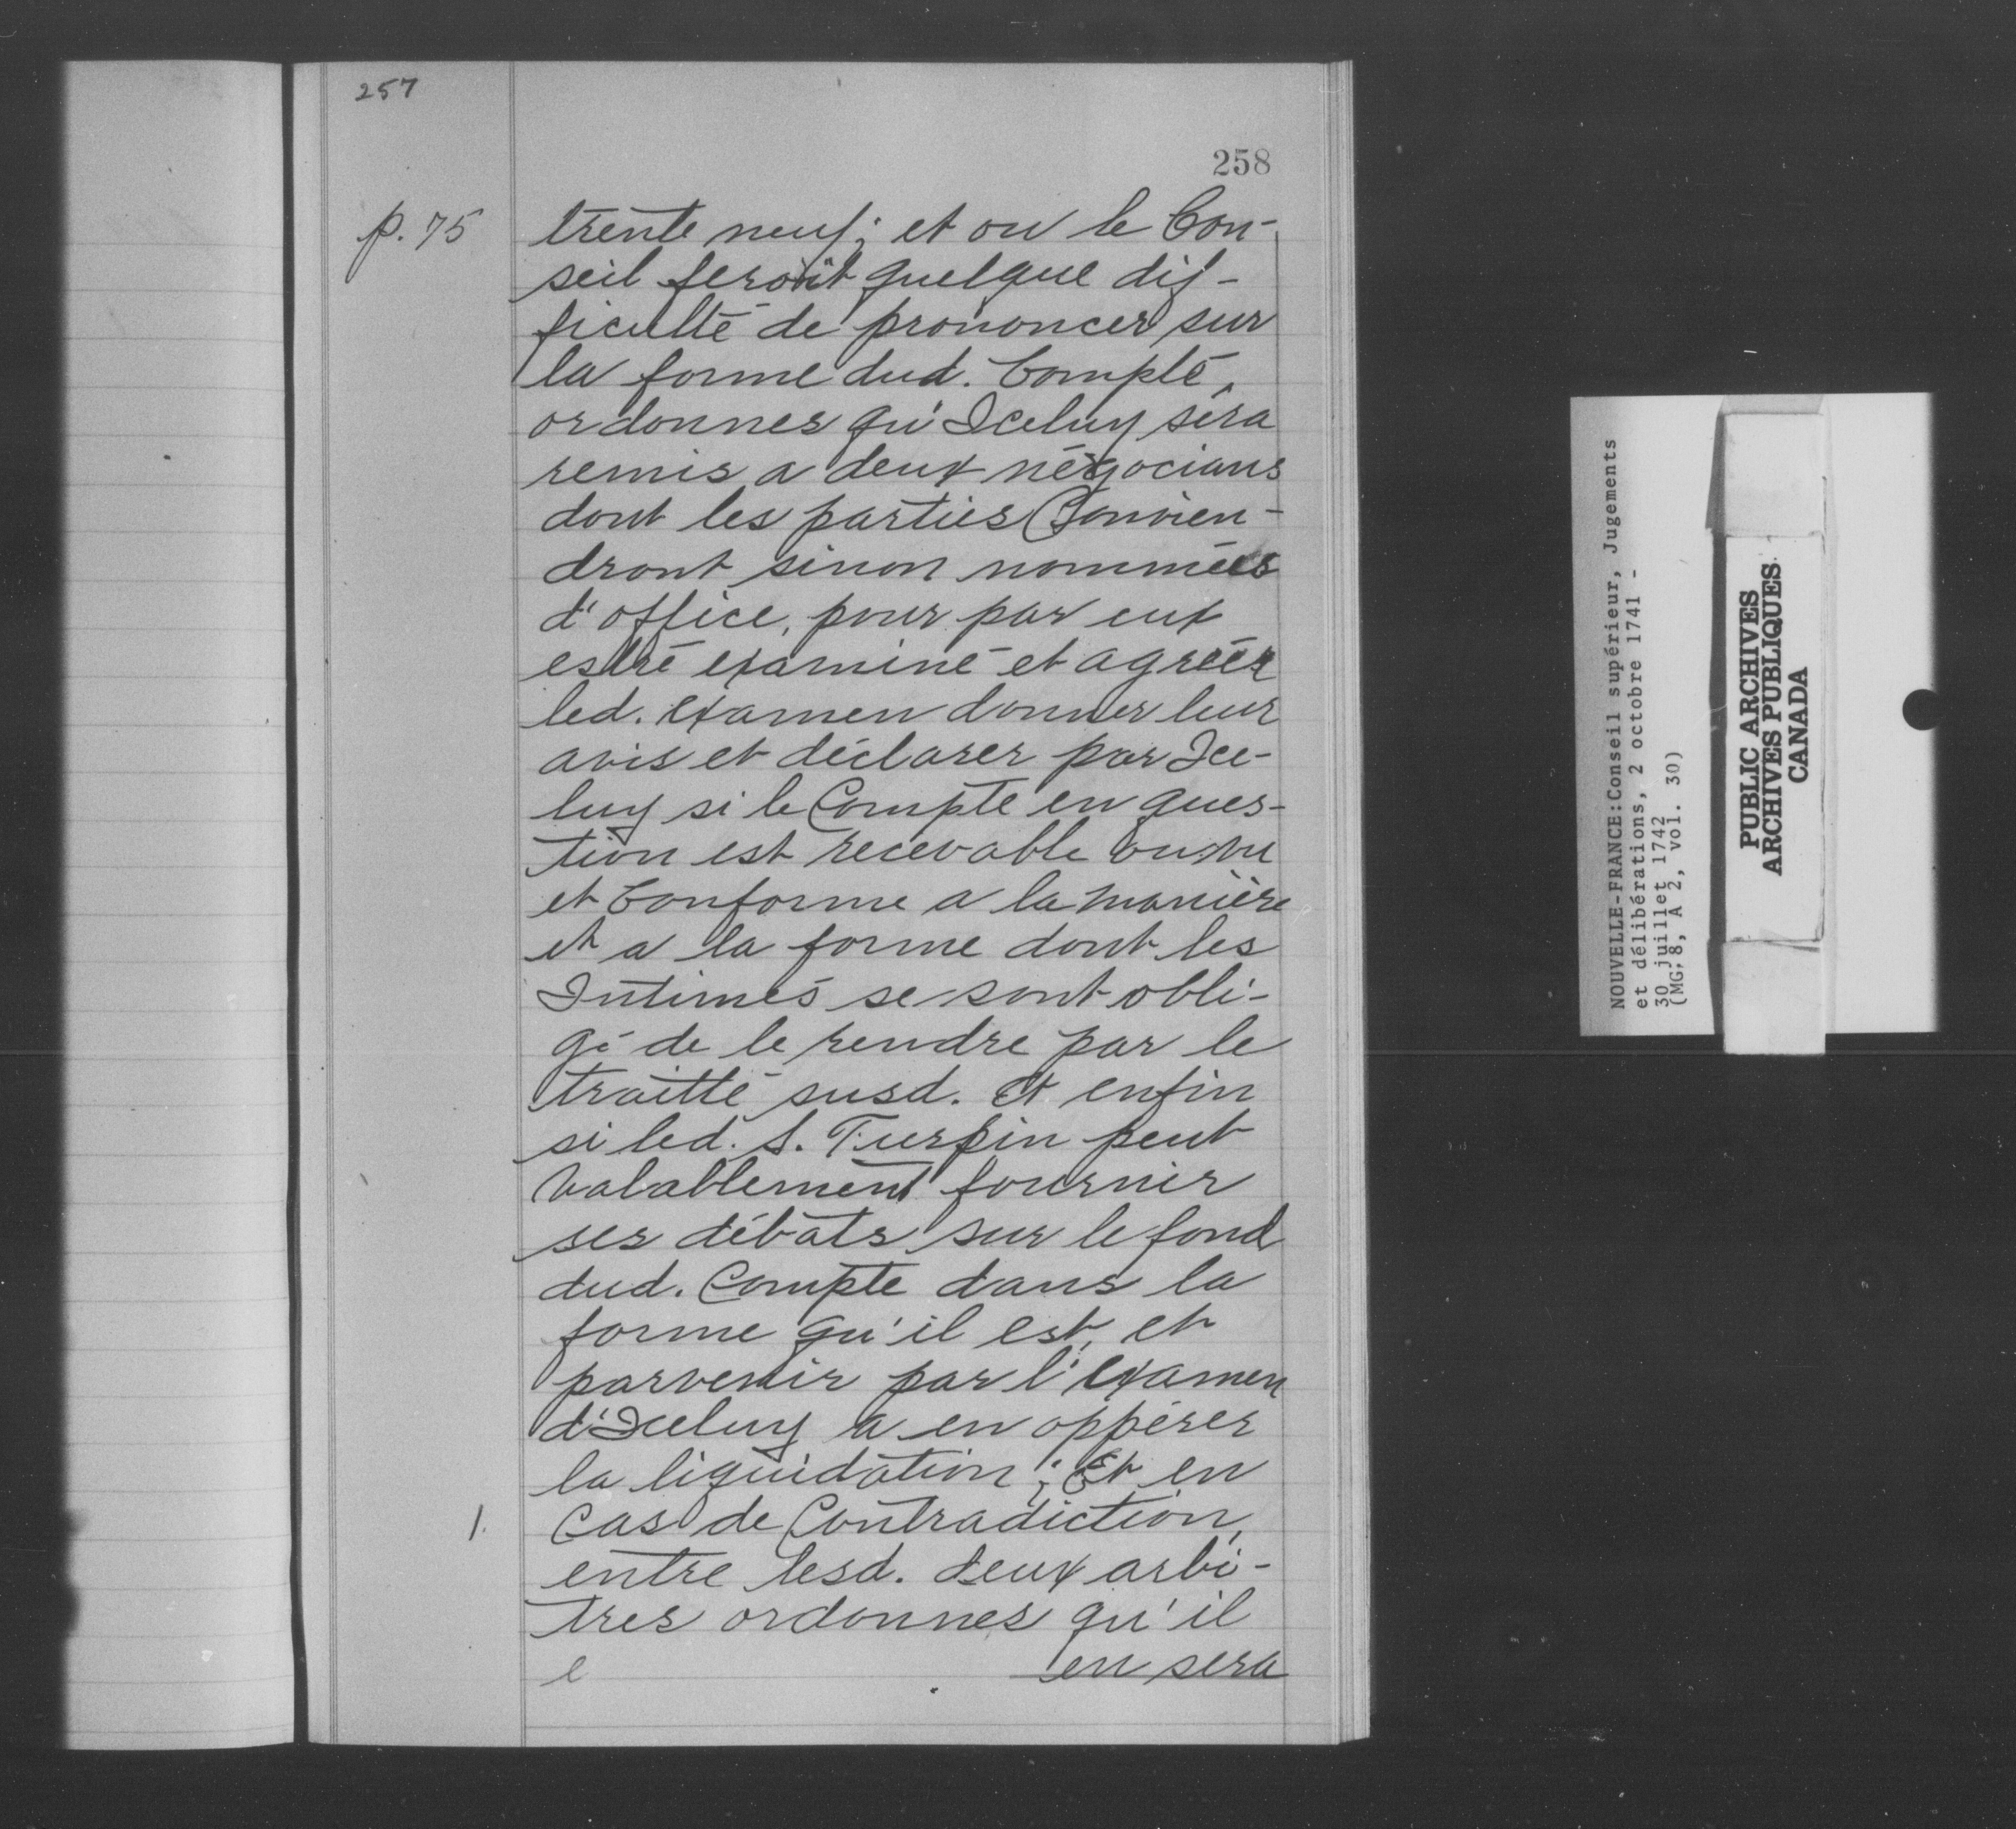 257
258
p. 75
trente neuf; et ou le Con-
seil feroit quelque dif-
ficulté de prononcer sur
la forme dud. Compte,
ordonner qu'Iceluy sera
remis a deux négocians
dont les parties Convien-
dront sinon nommées
d'office, pour par eux
estre examiné et agréér
led. examen donner leur
avis et déclarer par Ice-
luy si le Compte en ques-
tion est recevable ou nu
et Conforme a la manière
et a la forme dont les
Intimés se sont obli-
gé de le rendre par le
traitté susd. Et enfin
si led. S. Turpin peut
valablement fournir
ses débats sur le fond
dud. Compte dans la
forme qu'il est, et
parvenir par l'examen
d'Iceluy a en oppérer
la liquidation; Et en
1.
Cas de Contradiction,
entre lesd. deux arbi-
tres ordonner qu'il
e en sera
NOUVELLE-FRANCE:Conseil supérieur, Jugements
et délibérations, 2 octobre 1741 -
30 juillet 1742
(MG 8, A 2, vol. 30)
PUBLIC ARCHIVES
ARCHIVES PUBLIQUES
CANADA